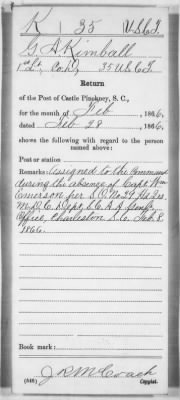 K 35 U.S.C.T.
G. A. Kimball
1st Lt., Co. D, 35 U.S.C.T.
Return
of the Post of Castle Pinckney, S. C.,
for the month of Feb, 1866,
dated Feb 28, 1866,
shows the following with regard to the person
named above:
Post or station
Remarks: Assigned to the Command
during the absence of Capt. Wm
Emerson per S.O. No 27, Hd. Qrs.
S.C. A. A.
Office, Charleston S.C. Feb. 8.
1866.
Book mark:
(548) Copyist.